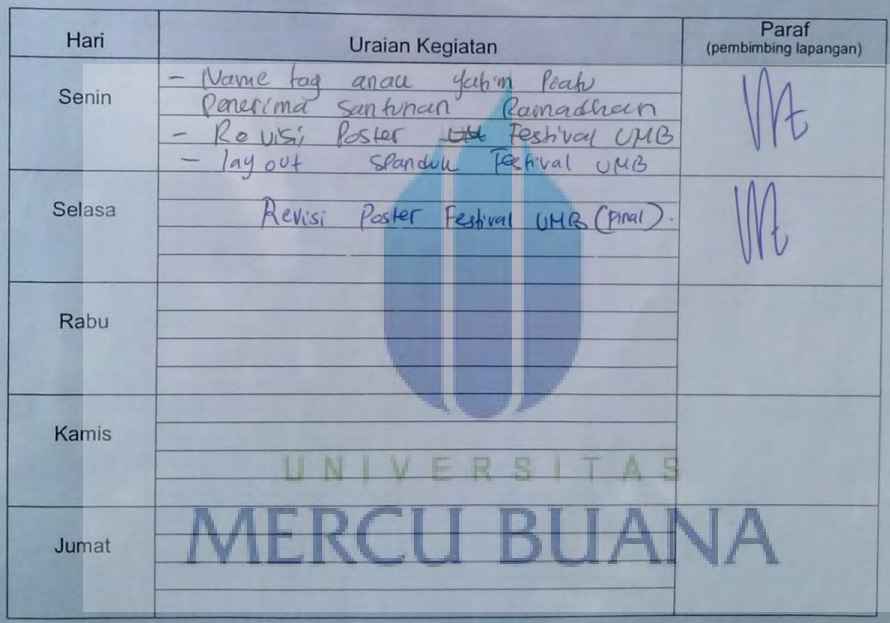 Hari
Uraian Kegiatan
Paraf
(pembimbing lapangan)
Senin
- Name tag anak yatim Piatu
Penerima Santunan Ramadhan
- Revisi Poster Festival UMB
- lay out spanduk Festival UMB
Selasa
Revisi Poster Festival UMB (Final).
Rabu
Kamis
UNIVERSITAS
MERCU BUANA
Jumat